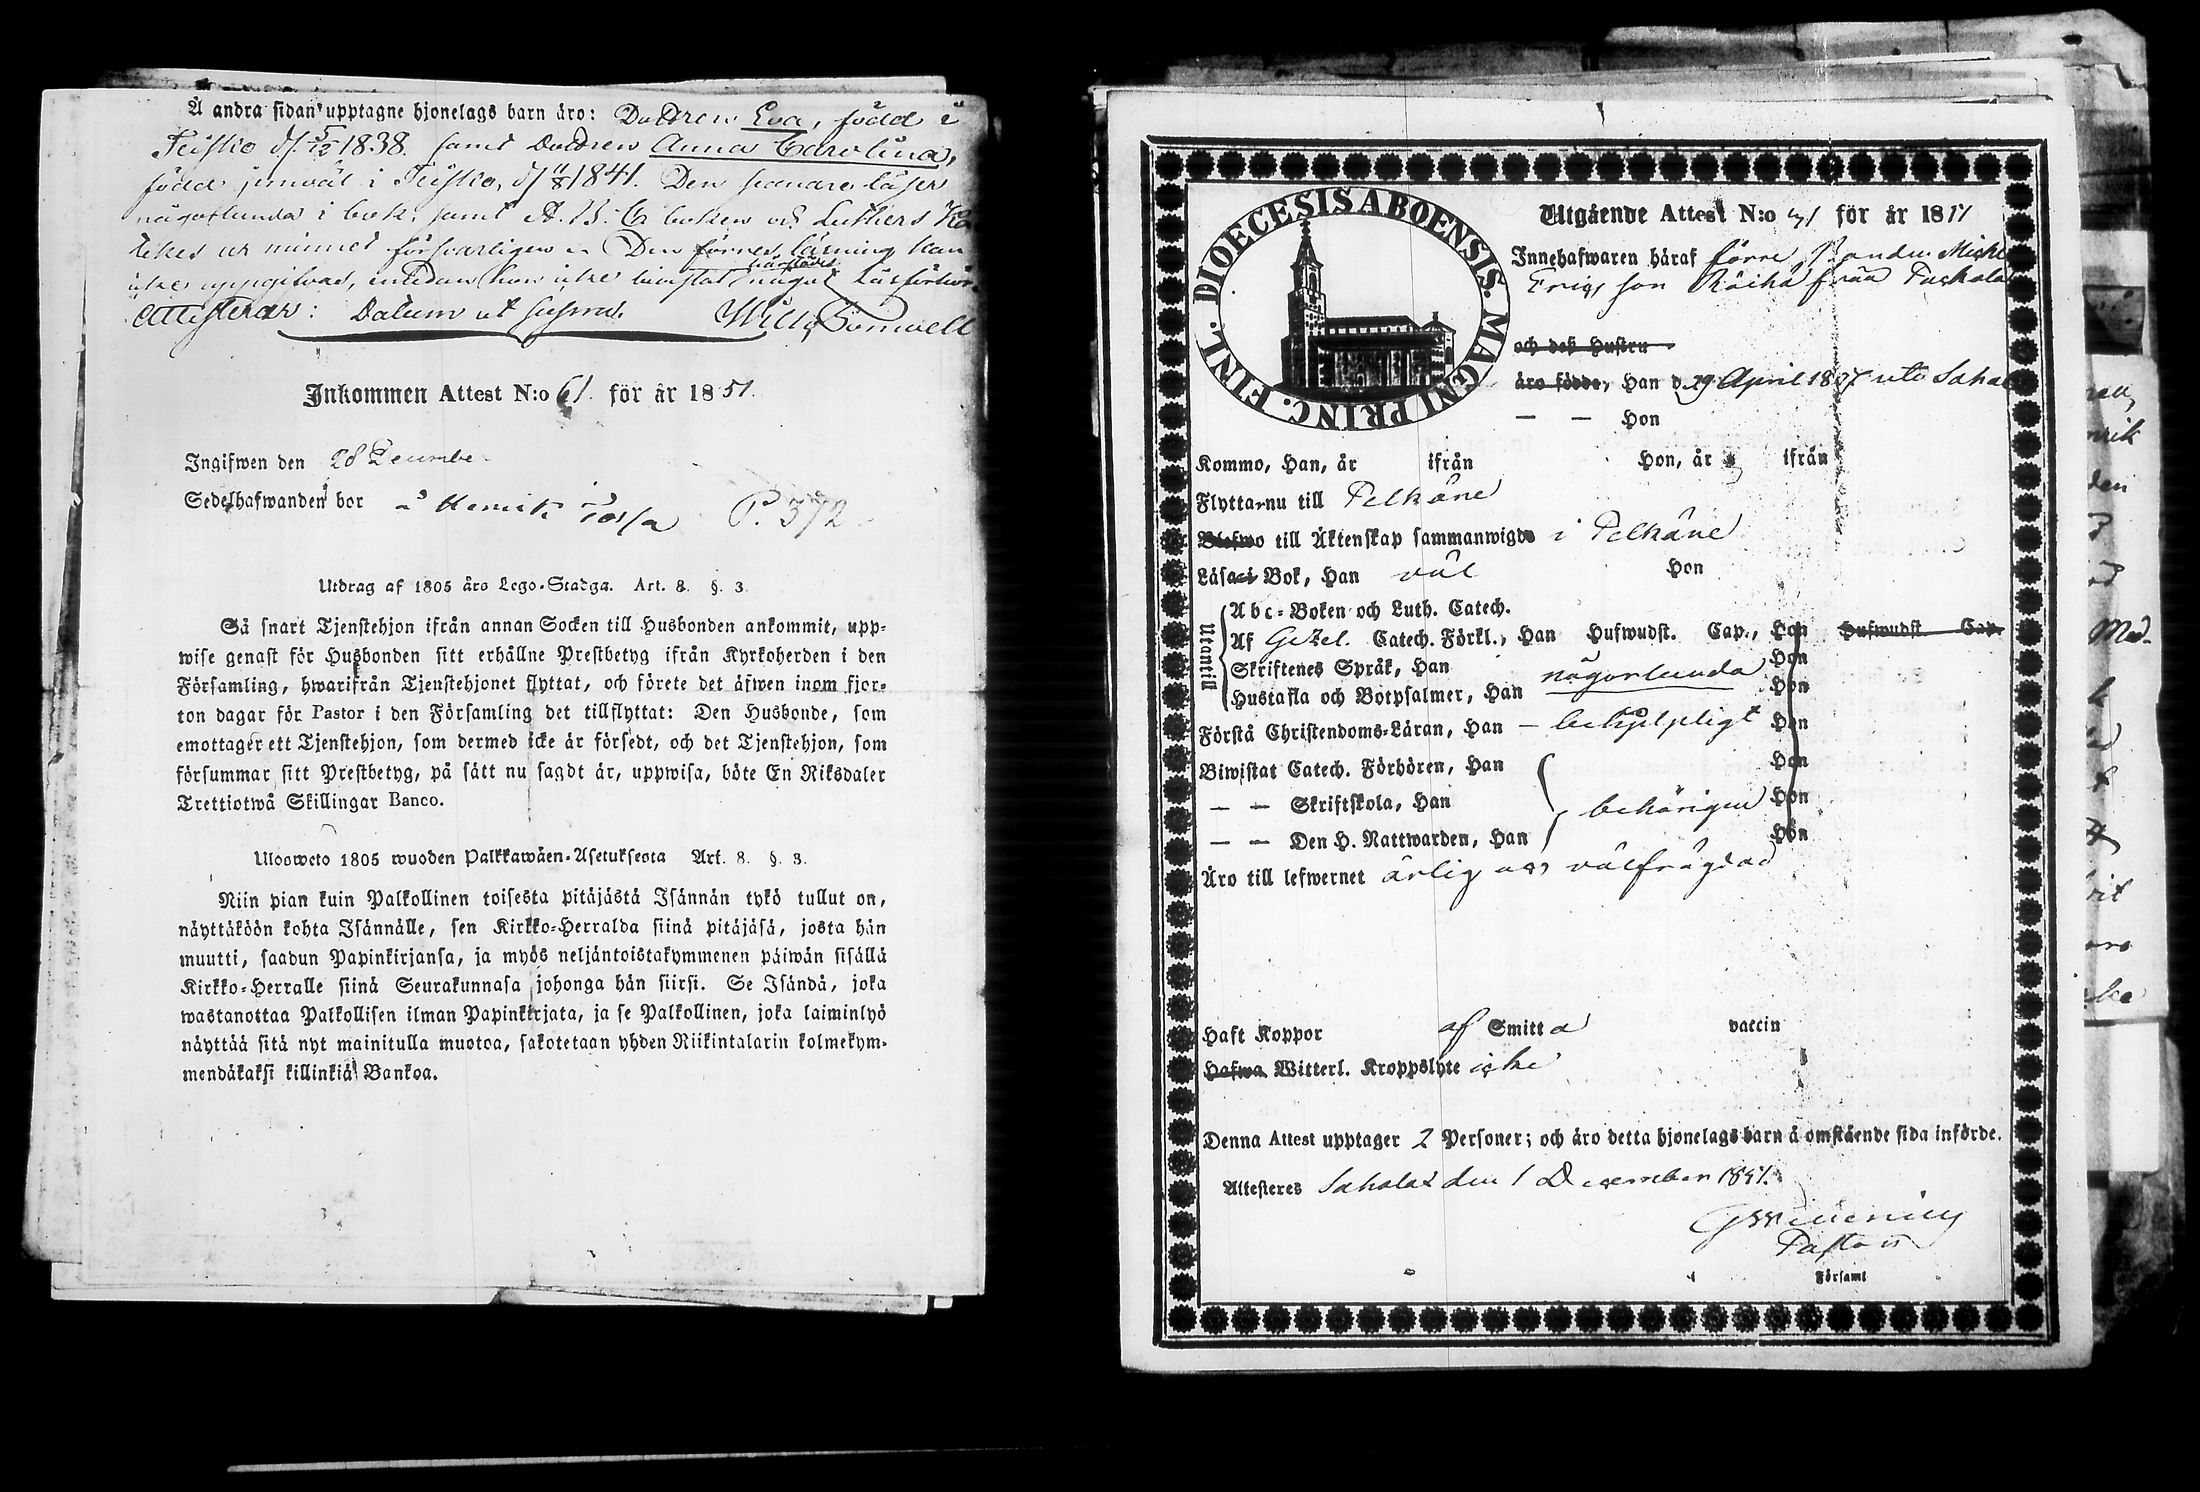 Å andra sidan upptagne hjonelags barn äro: Dottren Eva, född i
Teisko d. 5/12 1838. samt Dottren Anna Carolina,
född jemväl i Teisko, d. 11/8 1841. Den senare läser
någorlunda i bok, samt A. B. C. boken och Luthers Ka
tekes ur minnet försvarligen. Den förres läsning kan
icke uppgifvas, emedan hon icke bivistat härstädes något Läsförhör.
Attesterar: Datum ut supra.
Inkommen Attest N:o 61. för år 1851.
Ingifwen den 28 December
Sedelhafwanden bor å P. 372
Utdrag af 1805 års Lego-Stadga. Art. 8. §. 3.
Så snart Tjenstehjon ifrån annan Socken till Husbonden ankommit, upp-
wise genast för Husbonden sitt erhållne Prestbetyg ifrån Kyrkoherden i den
Församling, hwarifrån Tjenstehjonet flyttat, och förete det äfwen inom fjor-
ton dagar för Pastor i den Församling det tillflyttat: Den Husbonde, som
emottager ett Tjenstehjon, som dermed icke är försedt, och det Tjenstehjon, som
försummar sitt Prestbetyg, på sätt nu sagdt är, uppwisa, böte En Riksdaler
Trettiotwå Skillingar Banco.
Ulosweto 1805 wuoden Palkkawäen-Asetuksesta Art. 8. §. 3.
Niin pian kuin Palkollinen toisesta pitäjästä Isännän tykö tullut on,
näyttäköön kohta Isännälle, sen Kirkko-Herralda siinä pitäjäsä, josta hän
muutti, saadun Papinkirjansa, ja myös neljäntoistakymmenen päiwän sisällä
Kirkko-Herralle siinä Seurakunnasa johonga hän siirsi. Se Isändä, joka
wastanottaa Palkollisen ilman Papinkirjata, ja se Palkollinen, joka laiminlyö
näyttää sitä nyt mainitulla muotoa, sakotetaan yhden Riikintalarin kolmekym-
mendäkaksi killinkiä Bankoa.
DIOECESIS ABOENSIS. MAGNI PRINC. FINL.
Utgående Attest N:o 41 för år 1851
Innehafwaren häraf förre Bonden Michel
Ericsson Räihä från
och dess Hustru
äro födde, Han d. 29 April 1807 uti Sahal
— — Hon
Kommo, Han, år ifrån Hon, år ifrån
Flyttar nu till Pelkäne
Blefwo till Äktenskap sammanwigde i Pelkäne
Läsa i Bok, Han väl Hon
Utantill
Abc-Boken och Luth. Catech.
Af Gezel. Catech. Förkl., Han Hufwudst. Cap., Hon Hufwudst. Cap.
Skriftenes Språk, Han någorlunda Hon
Hustafla och Botpsalmer, Han Hon
Förstå Christendoms-Läran, Han — behjelpligt Hon
Biwistat Catech. Förhören, Han Hon
— — Skriftskola, Han behörigen Hon
— — Den H. Nattwarden, Han Hon
Äro till lefwernet ärlig och välfrägdad
Haft Koppor af Smitta vaccin
Hafwa Witterl. Kroppslyte icke
Denna Attest upptager 2 Personer; och äro detta hjonelags barn å omstående sida införde.
Attesteres Sahalax den 1 December 1851.
Pastor
Församl